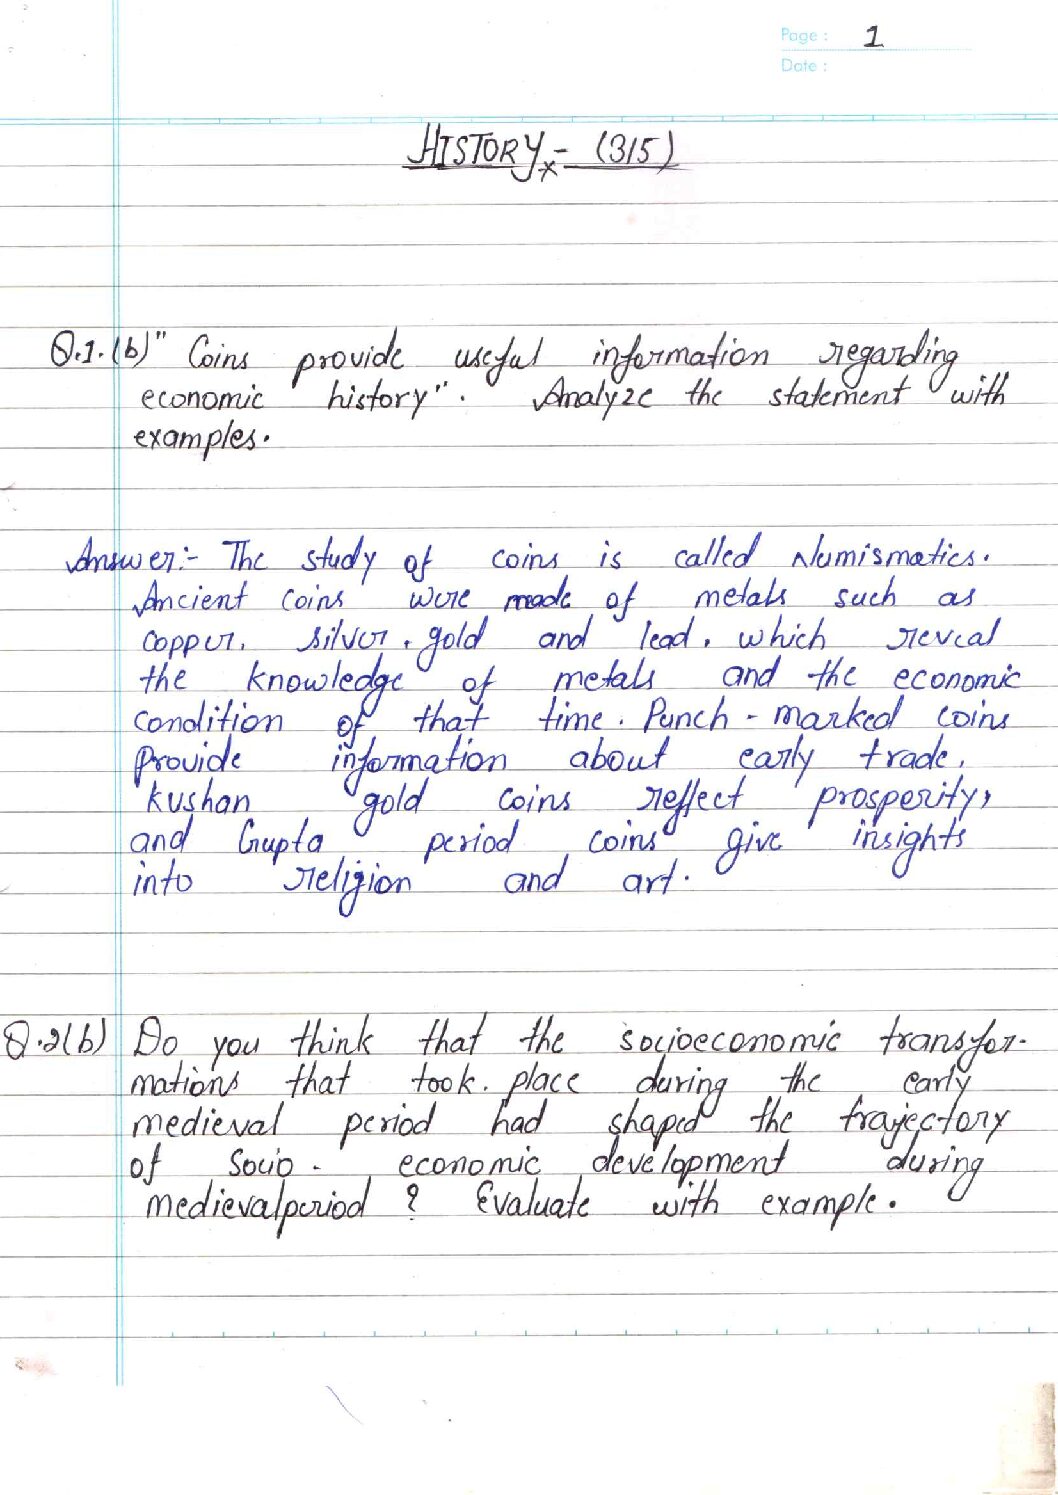 Page : 1
Date :
HISTORY - (315)
Q.1.(b)" Coins provide useful information regarding
economic history". Analyze the statement with
examples.
Answer:- The study of coins is called Numismatics.
Ancient coins were made of metals such as
copper, silver, gold and lead, which reveal
the knowledge of metals and the economic
condition of that time. Punch-marked coins
provide information about early trade,
kushan gold coins reflect prosperity,
and Gupta period coins give insights
into religion and art.
Q.2(b) Do you think that the socioeconomic transfor-
mations that took. place during the early
medieval period had shaped the trajectory
of Socio - economic development during
medievalperiod ? Evaluate with example.